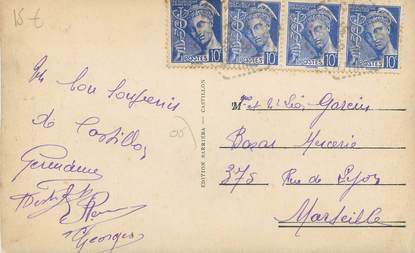 15 €
POSTES 10c
POSTES 10c
POSTES 10c
POSTES 10c
Un bon souvenir
de Castillon
Germaine
Georges
EDITION SARRIERA — CASTILLON
Mme et Mr Léo Garcin
Bazar Mercerie
375 Rue de Lyon
Marseille